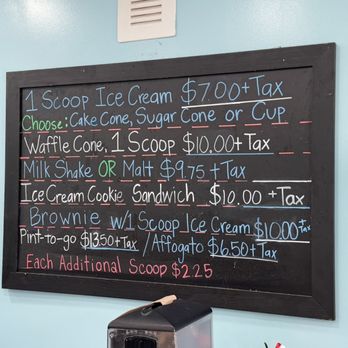 1 Scoop Ice Cream $7.00 + Tax
Choose: Cake Cone, Sugar Cone or Cup
Waffle Cone, 1 Scoop $10.00 + Tax
Milk Shake OR Malt $9.75 + Tax
Ice Cream Cookie Sandwich $10.00 + Tax
Brownie w/1 Scoop Ice Cream $10.00 + Tax
Pint-to-go $13.50 + Tax / Affogato $6.50 + Tax
Each Additional Scoop $2.25